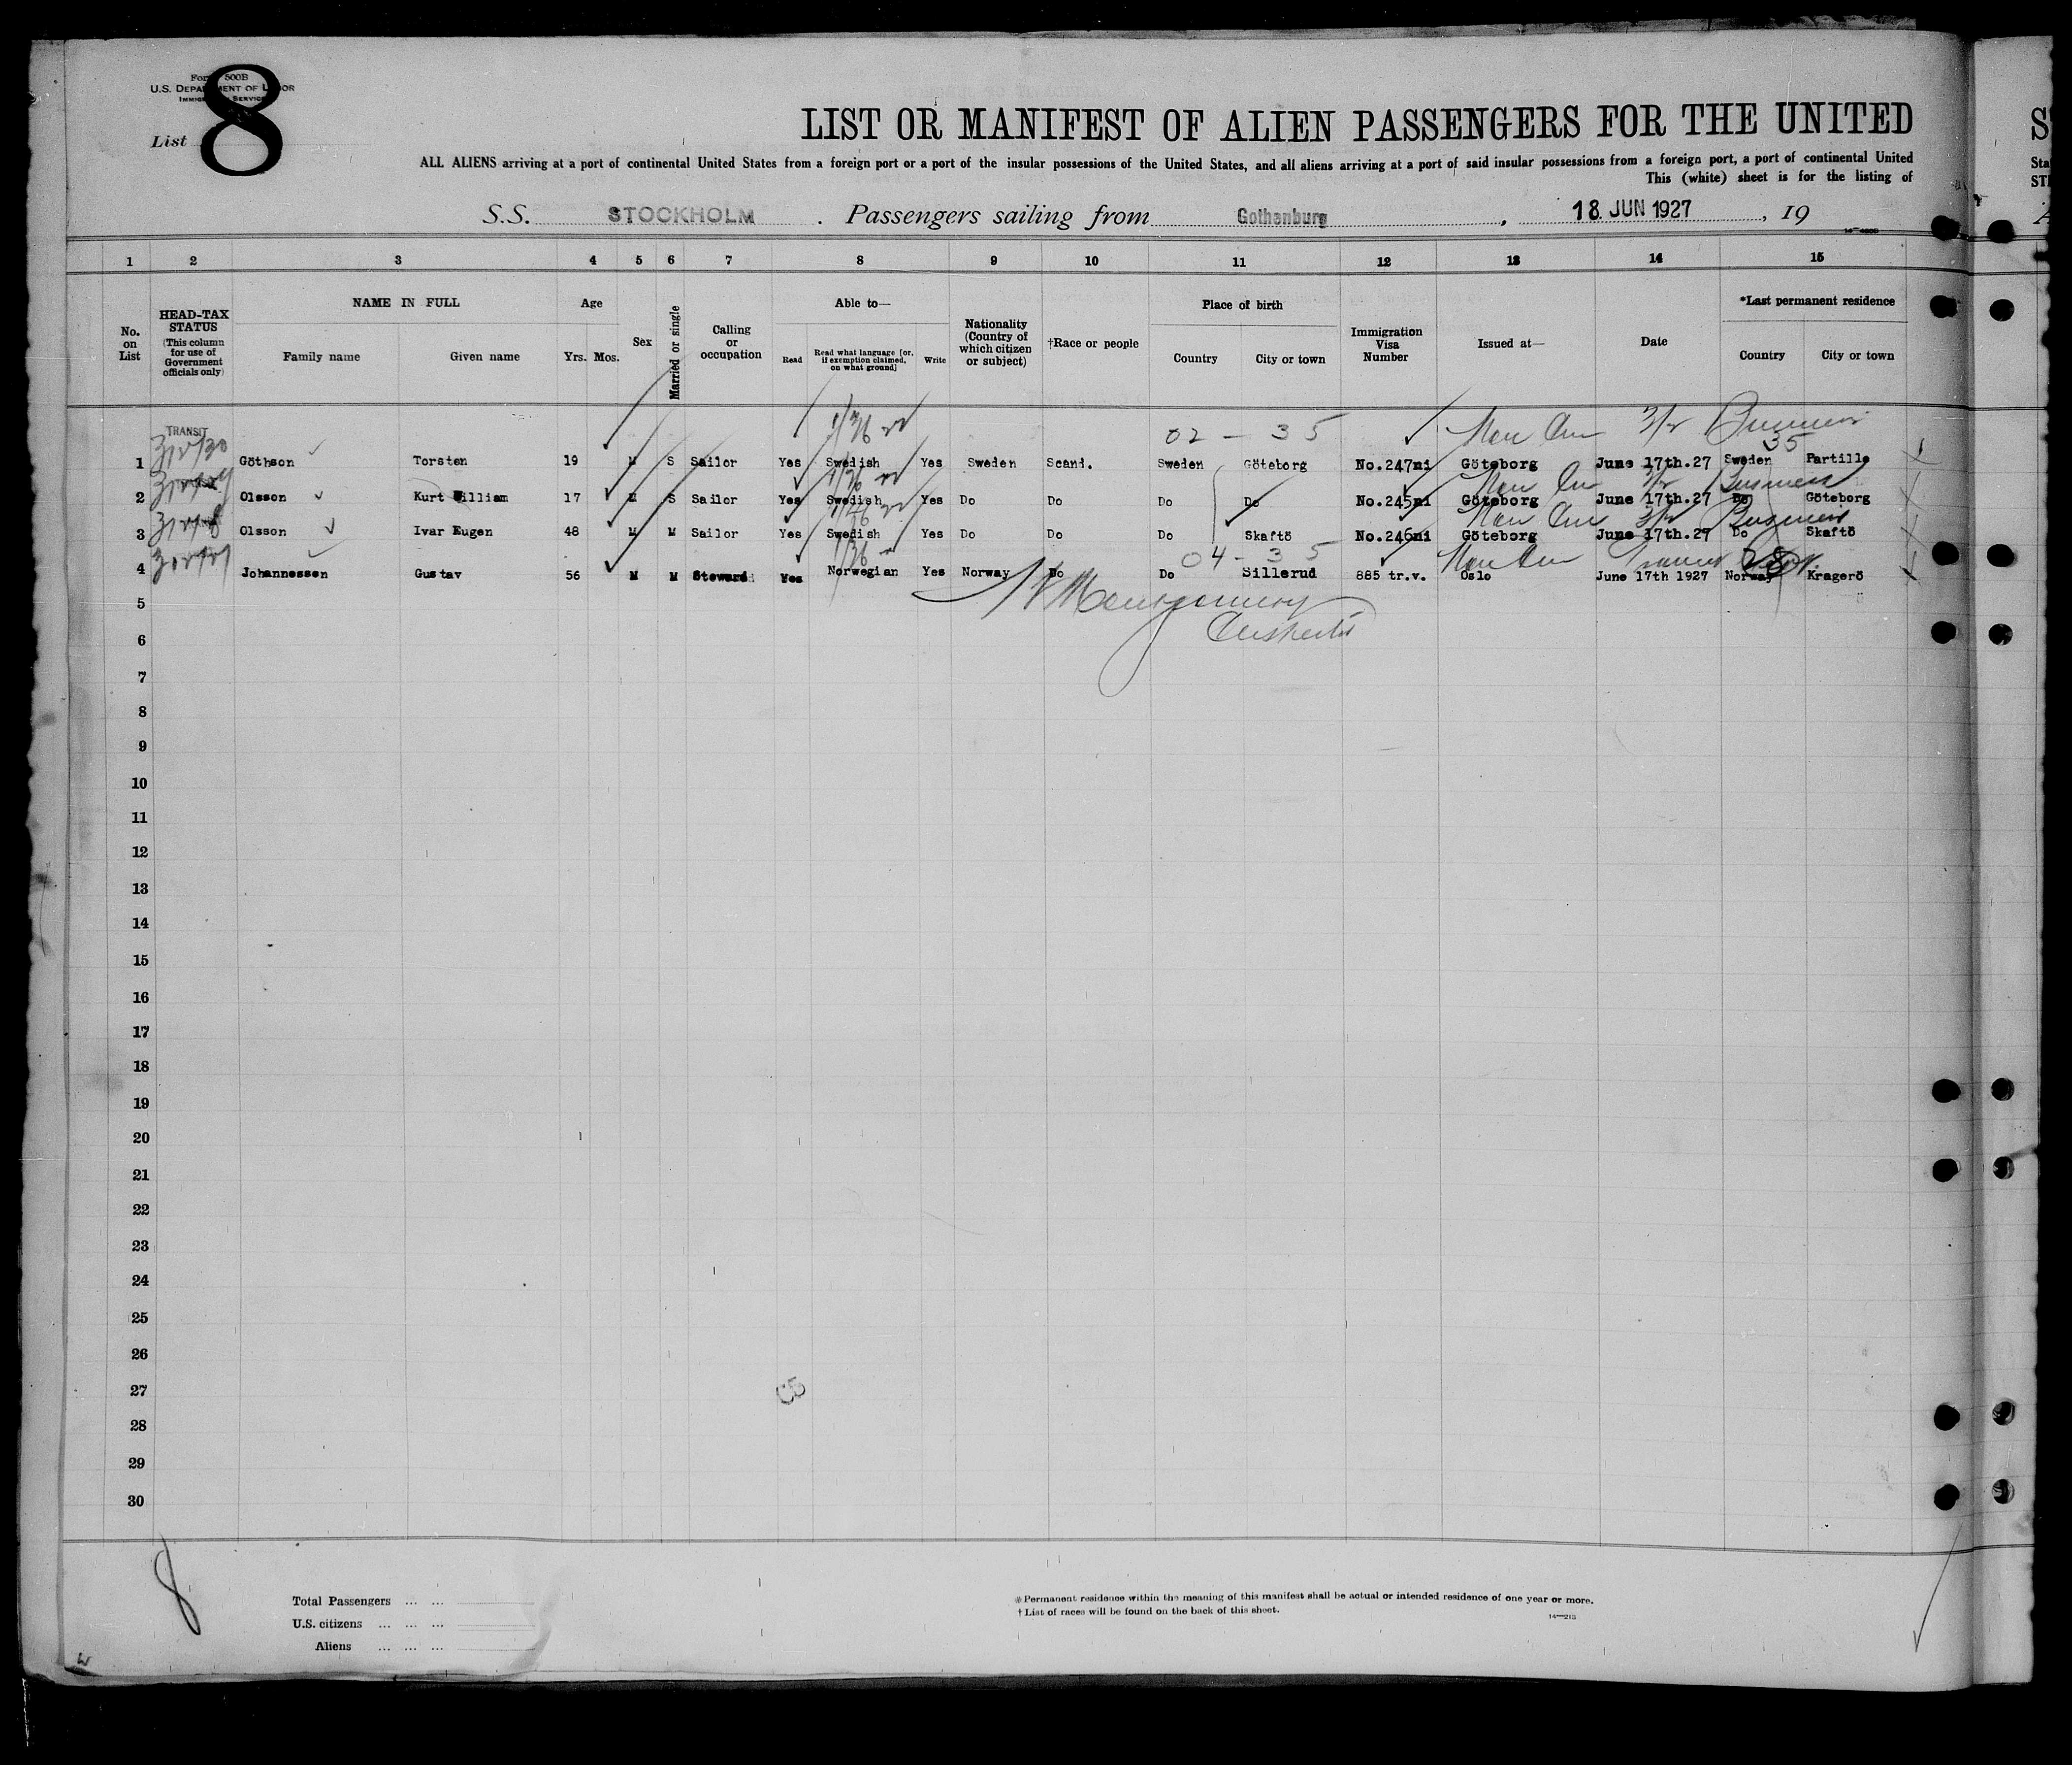 Form 500B
U.S. DEPARTMENT OF LABOR
IMMIGRATION SERVICE
List 8
LIST OR MANIFEST OF ALIEN PASSENGERS FOR THE UNITED
ALL ALIENS arriving at a port of continental United States from a foreign port or a port of the insular possessions of the United States, and all aliens arriving at a port of said insular possessions from a foreign port, a port of continental United
This (white) sheet is for the listing of
S.S. STOCKHOLM. Passengers sailing from Gothenburg, 18. JUN 1927, 19
1 2 3 4 5 6 7 8 9 10 11 12 13 14 15
No. on List
HEAD-TAX STATUS (This column for use of Government officials only)
NAME IN FULL
Family name Given name
Age
Yrs. Mos.
Sex
Married or single
Calling or occupation
Able to—
Read
Read what language [or, if exemption claimed, on what ground]
Write
Nationality (Country of which citizen or subject)
†Race or people
Place of birth
Country City or town
Immigration Visa Number
Issued at—
Date
*Last permanent residence
Country City or town
TRANSIT
02 - 35
35
1 Göthson Torsten 19 M S Sailor Yes Swedish Yes Sweden Scand. Sweden Göteborg No.247ni Göteborg June 17th.27 Sweden Partille
Business
2 Olsson Kurt William 17 M S Sailor Yes Swedish Yes Do Do Do Do No.245ni Göteborg June 17th.27 Do Göteborg
Business
3 Olsson Ivar Eugen 48 M M Sailor Yes Swedish Yes Do Do Do Skaftö No.246ni Göteborg June 17th.27 Do Skaftö
04 - 35
4 Johannessen Gustav 56 M M Steward Yes Norwegian Yes Norway Do Do Sillerud 885 tr.v. Oslo June 17th 1927 Norway Kragerö
Montgomery
5
6
7
8
9
10
11
12
13
14
15
16
17
18
19
20
21
22
23
24
25
26
27
28
29
30
C5
8
Total Passengers ... ...
U.S. citizens ... ... ...
Aliens ... ... ...
* Permanent residence within the meaning of this manifest shall be actual or intended residence of one year or more.
† List of races will be found on the back of this sheet.
14—213